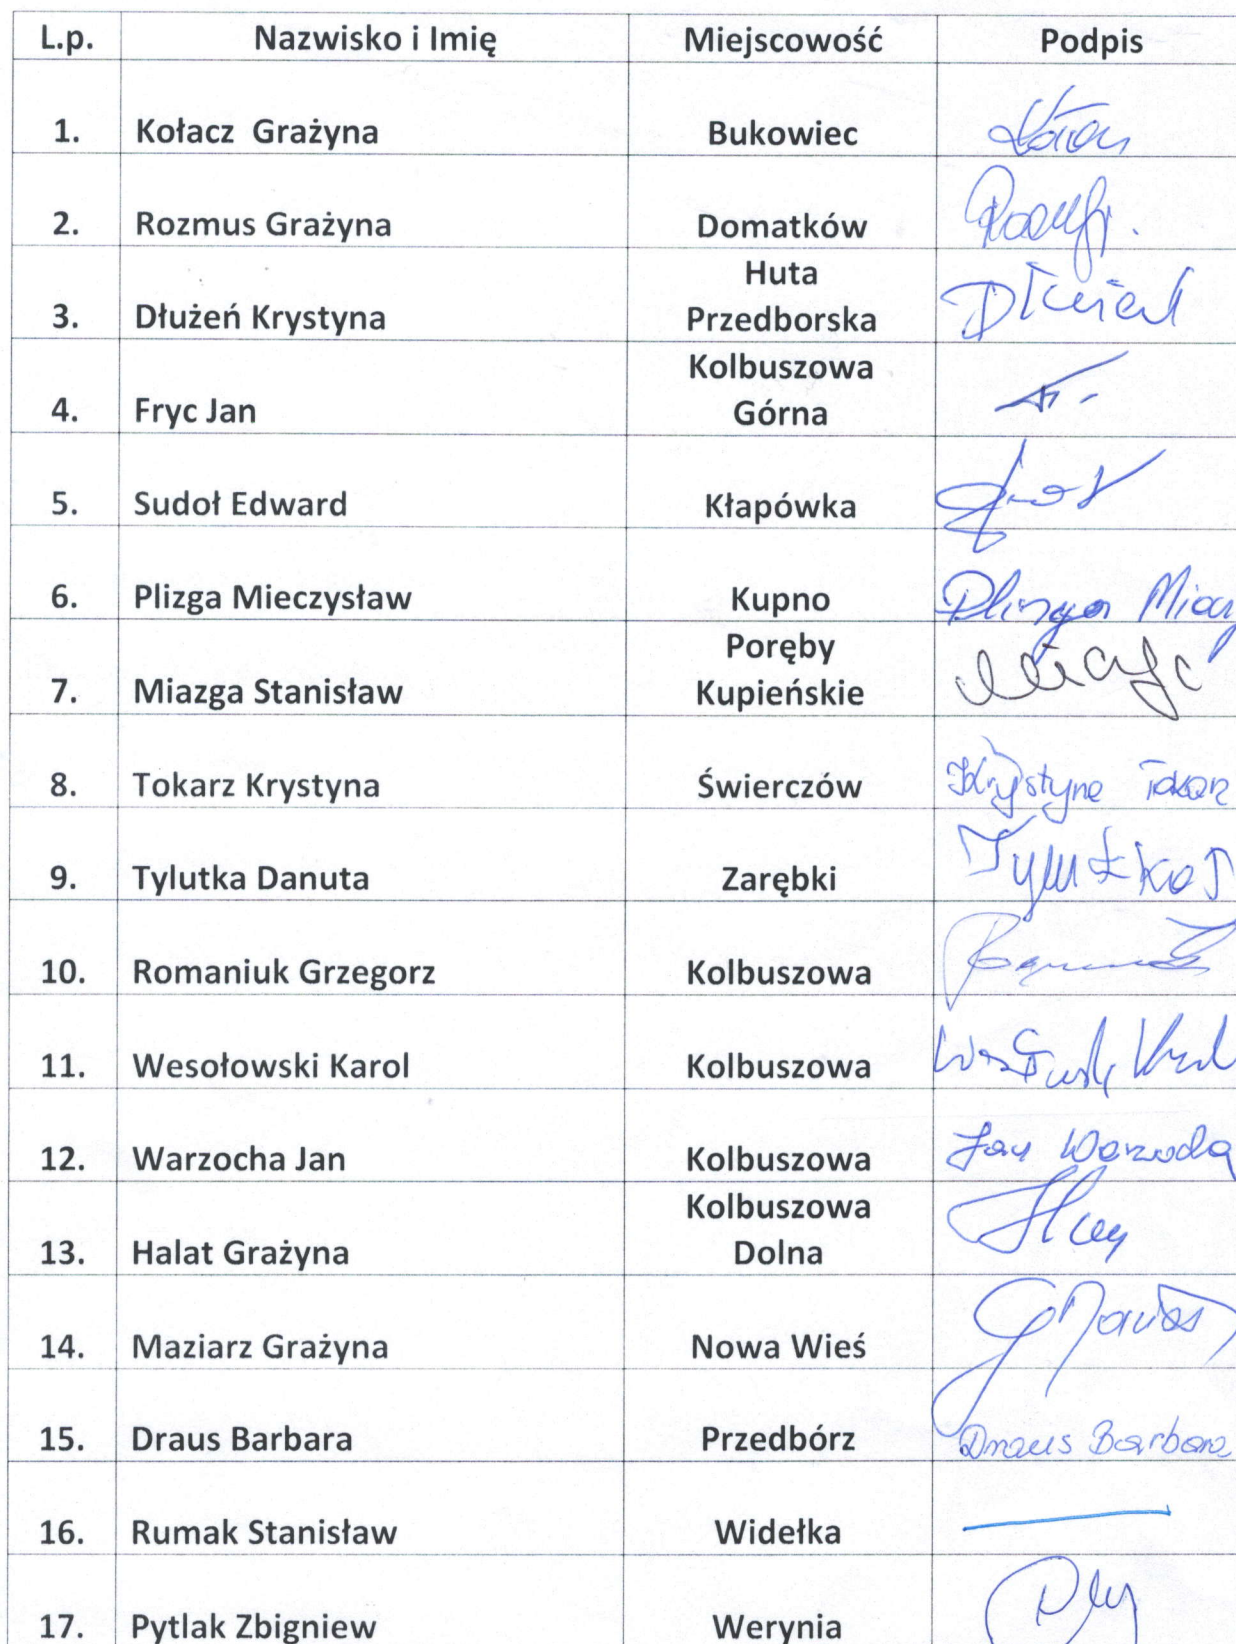 L.p. Nazwisko i Imię Miejscowość Podpis
1. Kołacz Grażyna Bukowiec
2. Rozmus Grażyna Domatków
Huta
3. Dłużeń Krystyna Przedborska
Kolbuszowa
4. Fryc Jan Górna
5. Sudoł Edward Kłapówka
6. Plizga Mieczysław Kupno
Poręby
7. Miazga Stanisław Kupieńskie
8. Tokarz Krystyna Świerczów Krystyna
9. Tylutka Danuta Zarębki Tylutka D
10. Romaniuk Grzegorz Kolbuszowa
11. Wesołowski Karol Kolbuszowa
12. Warzocha Jan Kolbuszowa Jan
Kolbuszowa
13. Halat Grażyna Dolna
14. Maziarz Grażyna Nowa Wieś
15. Draus Barbara Przedbórz Draus Barbara
16. Rumak Stanisław Widełka
17. Pytlak Zbigniew Werynia